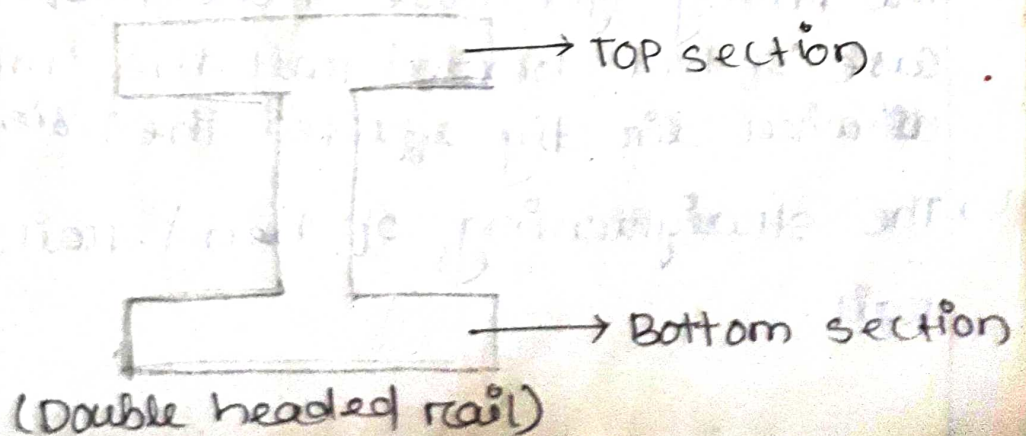 TOP section
Bottom section
(Double headed rail)